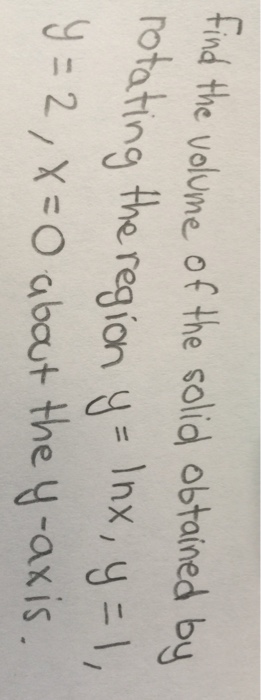 find the volume of the solid obtained by
rotating the region y = lnx, y = 1,
y = 2, x = 0 about the y-axis.